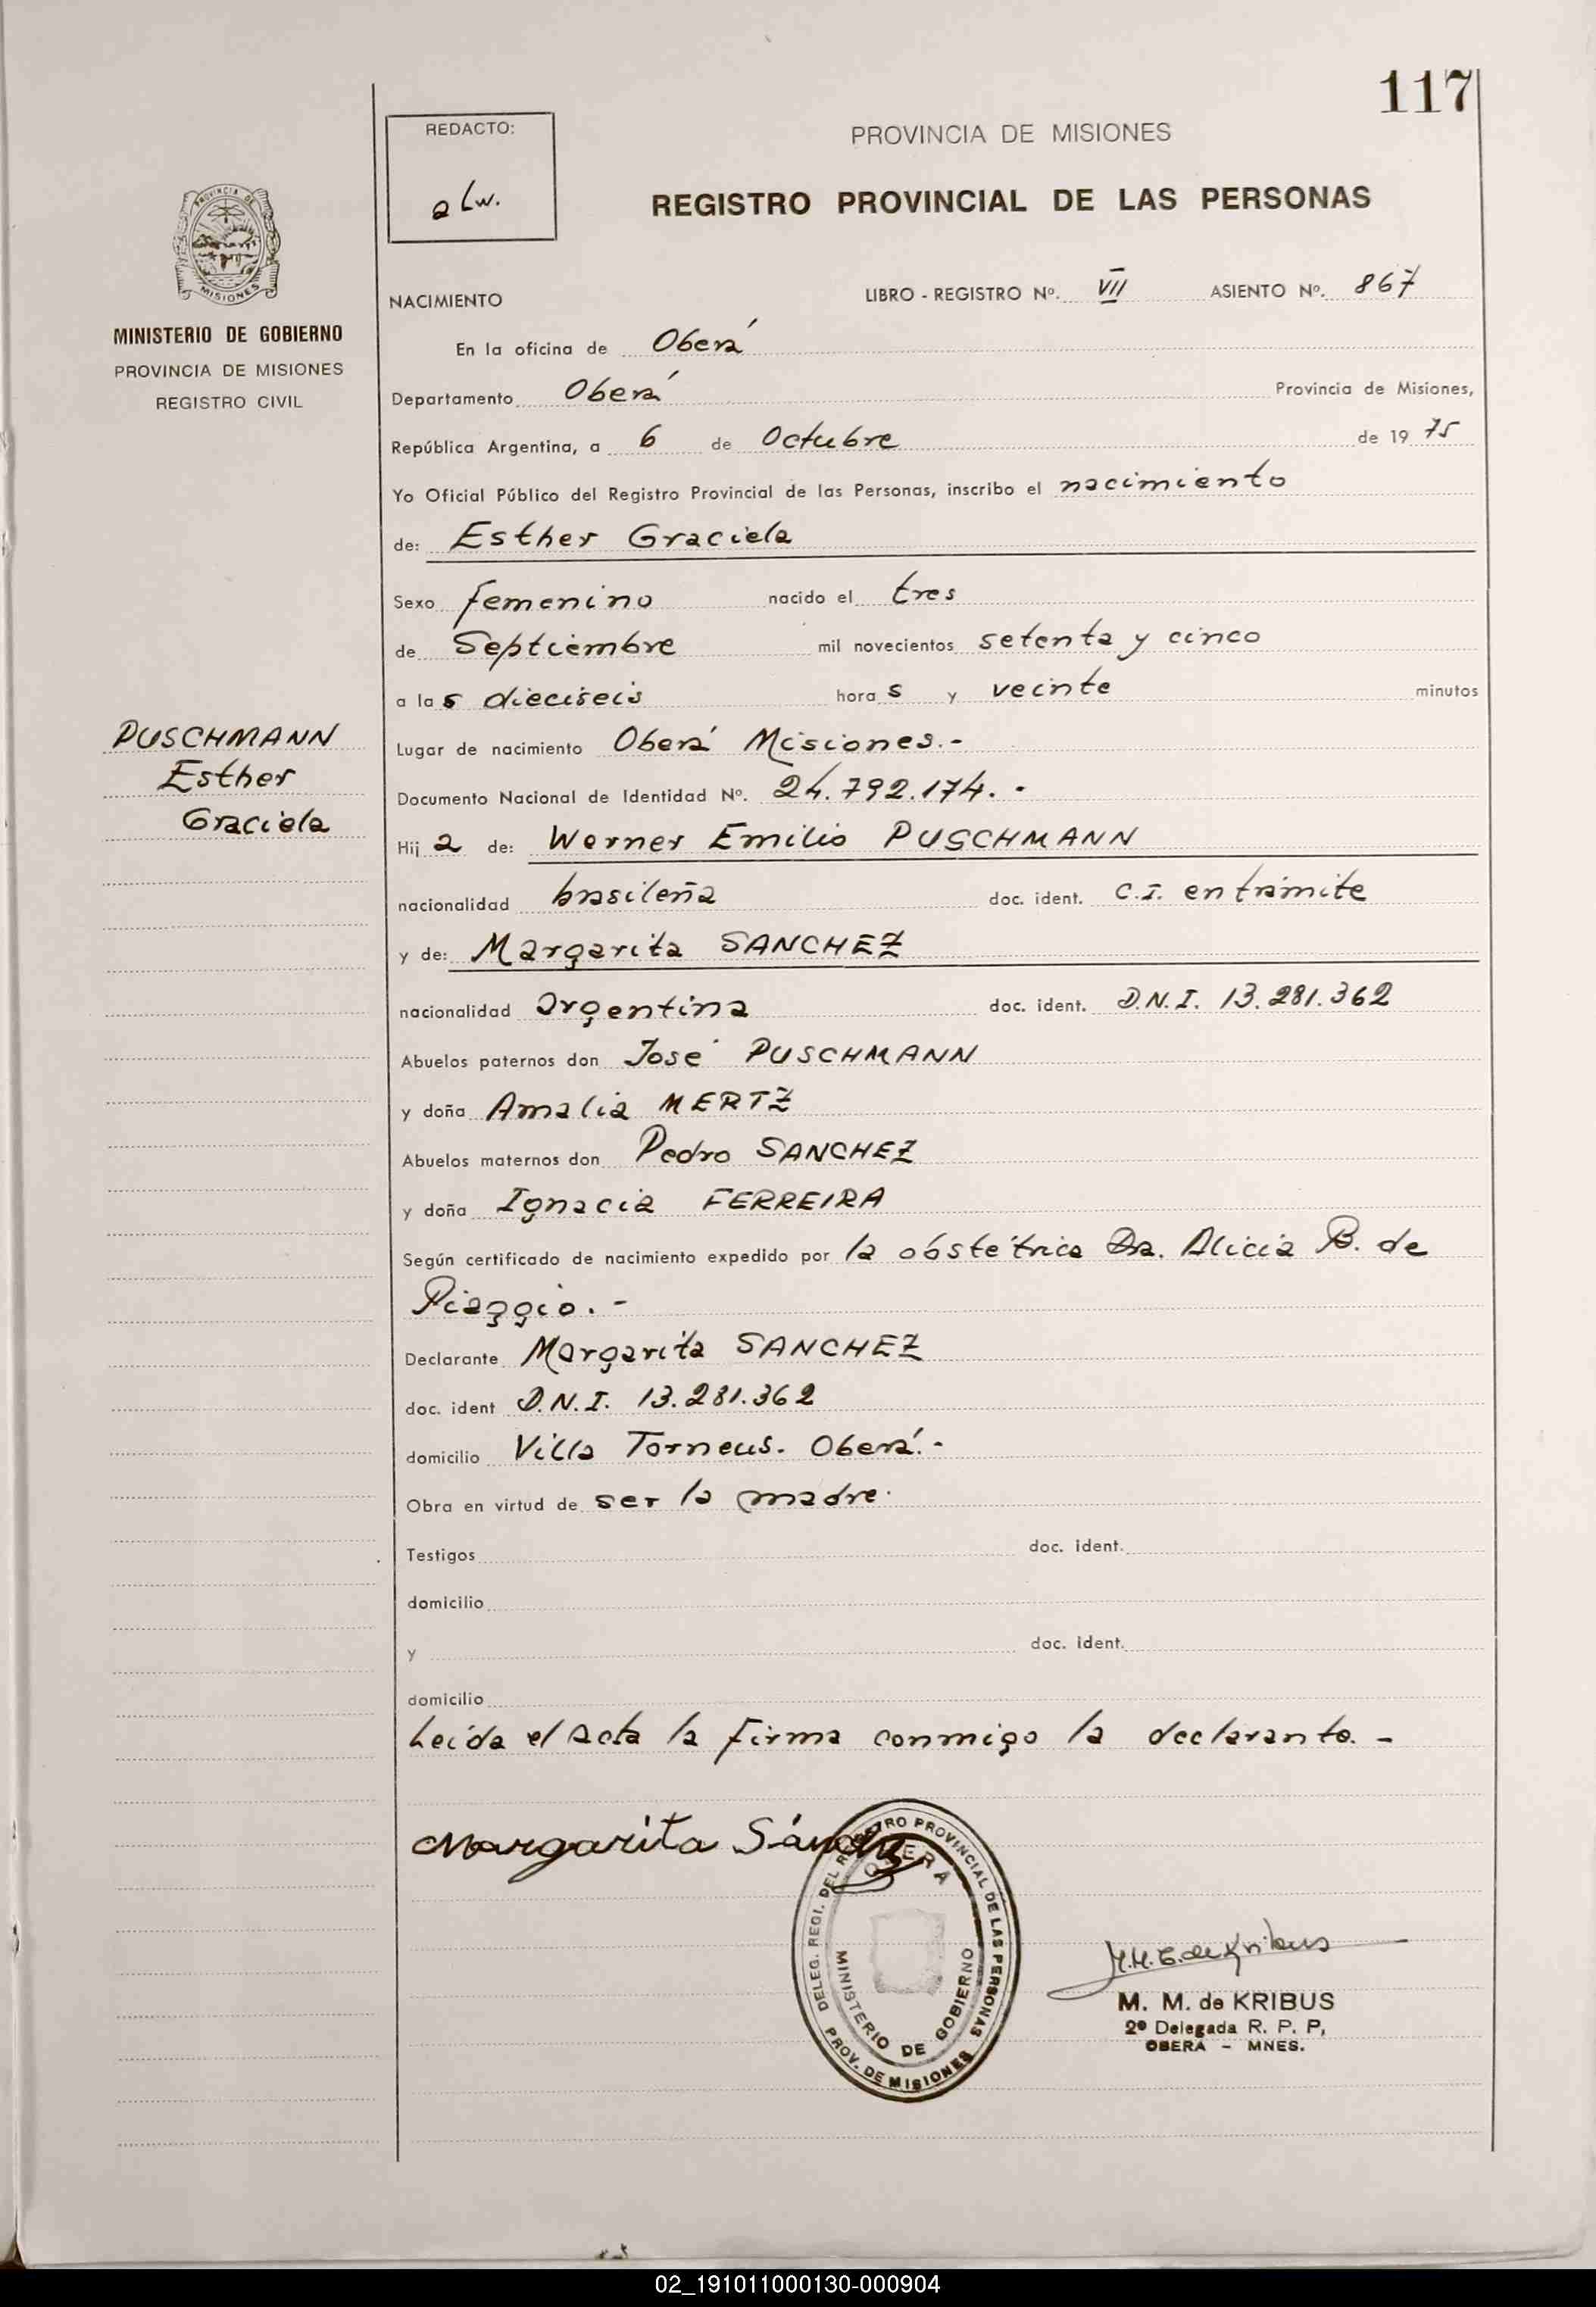 117
REDACTO:
alw.
PROVINCIA DE MISIONES
REGISTRO PROVINCIAL DE LAS PERSONAS
PROVINCIA DE
MISIONES
MINISTERIO DE GOBIERNO
PROVINCIA DE MISIONES
REGISTRO CIVIL
NACIMIENTO LIBRO - REGISTRO Nº. VII ASIENTO Nº. 867
En la oficina de Oberá
Departamento Oberá Provincia de Misiones,
República Argentina, a 6 de Octubre de 19 75
Yo Oficial Público del Registro Provincial de las Personas, inscribo el nacimiento
de: Esther Graciela
Sexo femenino nacido el tres
de Septiembre mil novecientos setenta y cinco
a las dieciseis horas y veinte minutos
PUSCHMANN
Esther
Graciela
Lugar de nacimiento Oberá Misiones.-
Documento Nacional de Identidad Nº. 24.792.174.-
Hija de: Werner Emilio PUSCHMANN
nacionalidad brasileña doc. ident. C.I. en trámite
y de: Margarita SANCHEZ
nacionalidad argentina doc. ident. D.N.I. 13.281.362
Abuelos paternos don José PUSCHMANN
y doña Amalia MERTZ
Abuelos maternos don Pedro SANCHEZ
y doña Ignacia FERREIRA
Según certificado de nacimiento expedido por la obstétrica Dra. Alicia B. de
Piaggio.-
Declarante Margarita SANCHEZ
doc. ident D.N.I. 13.281.362
domicilio Villa Torneus. Oberá.-
Obra en virtud de ser la madre.
Testigos doc. ident.
domicilio
y doc. ident.
domicilio
Leída el acta la firma conmigo la declarante.-
Margarita Sánchez
DELEG. REGI. DEL REGISTRO PROVINCIAL DE LAS PERSONAS
OBERA
MINISTERIO DE GOBIERNO
PROV. DE MISIONES
M.M.G. de Kribus
M. M. de KRIBUS
2º Delegada R. P. P,
OBERA - MNES.
02_191011000130-000904